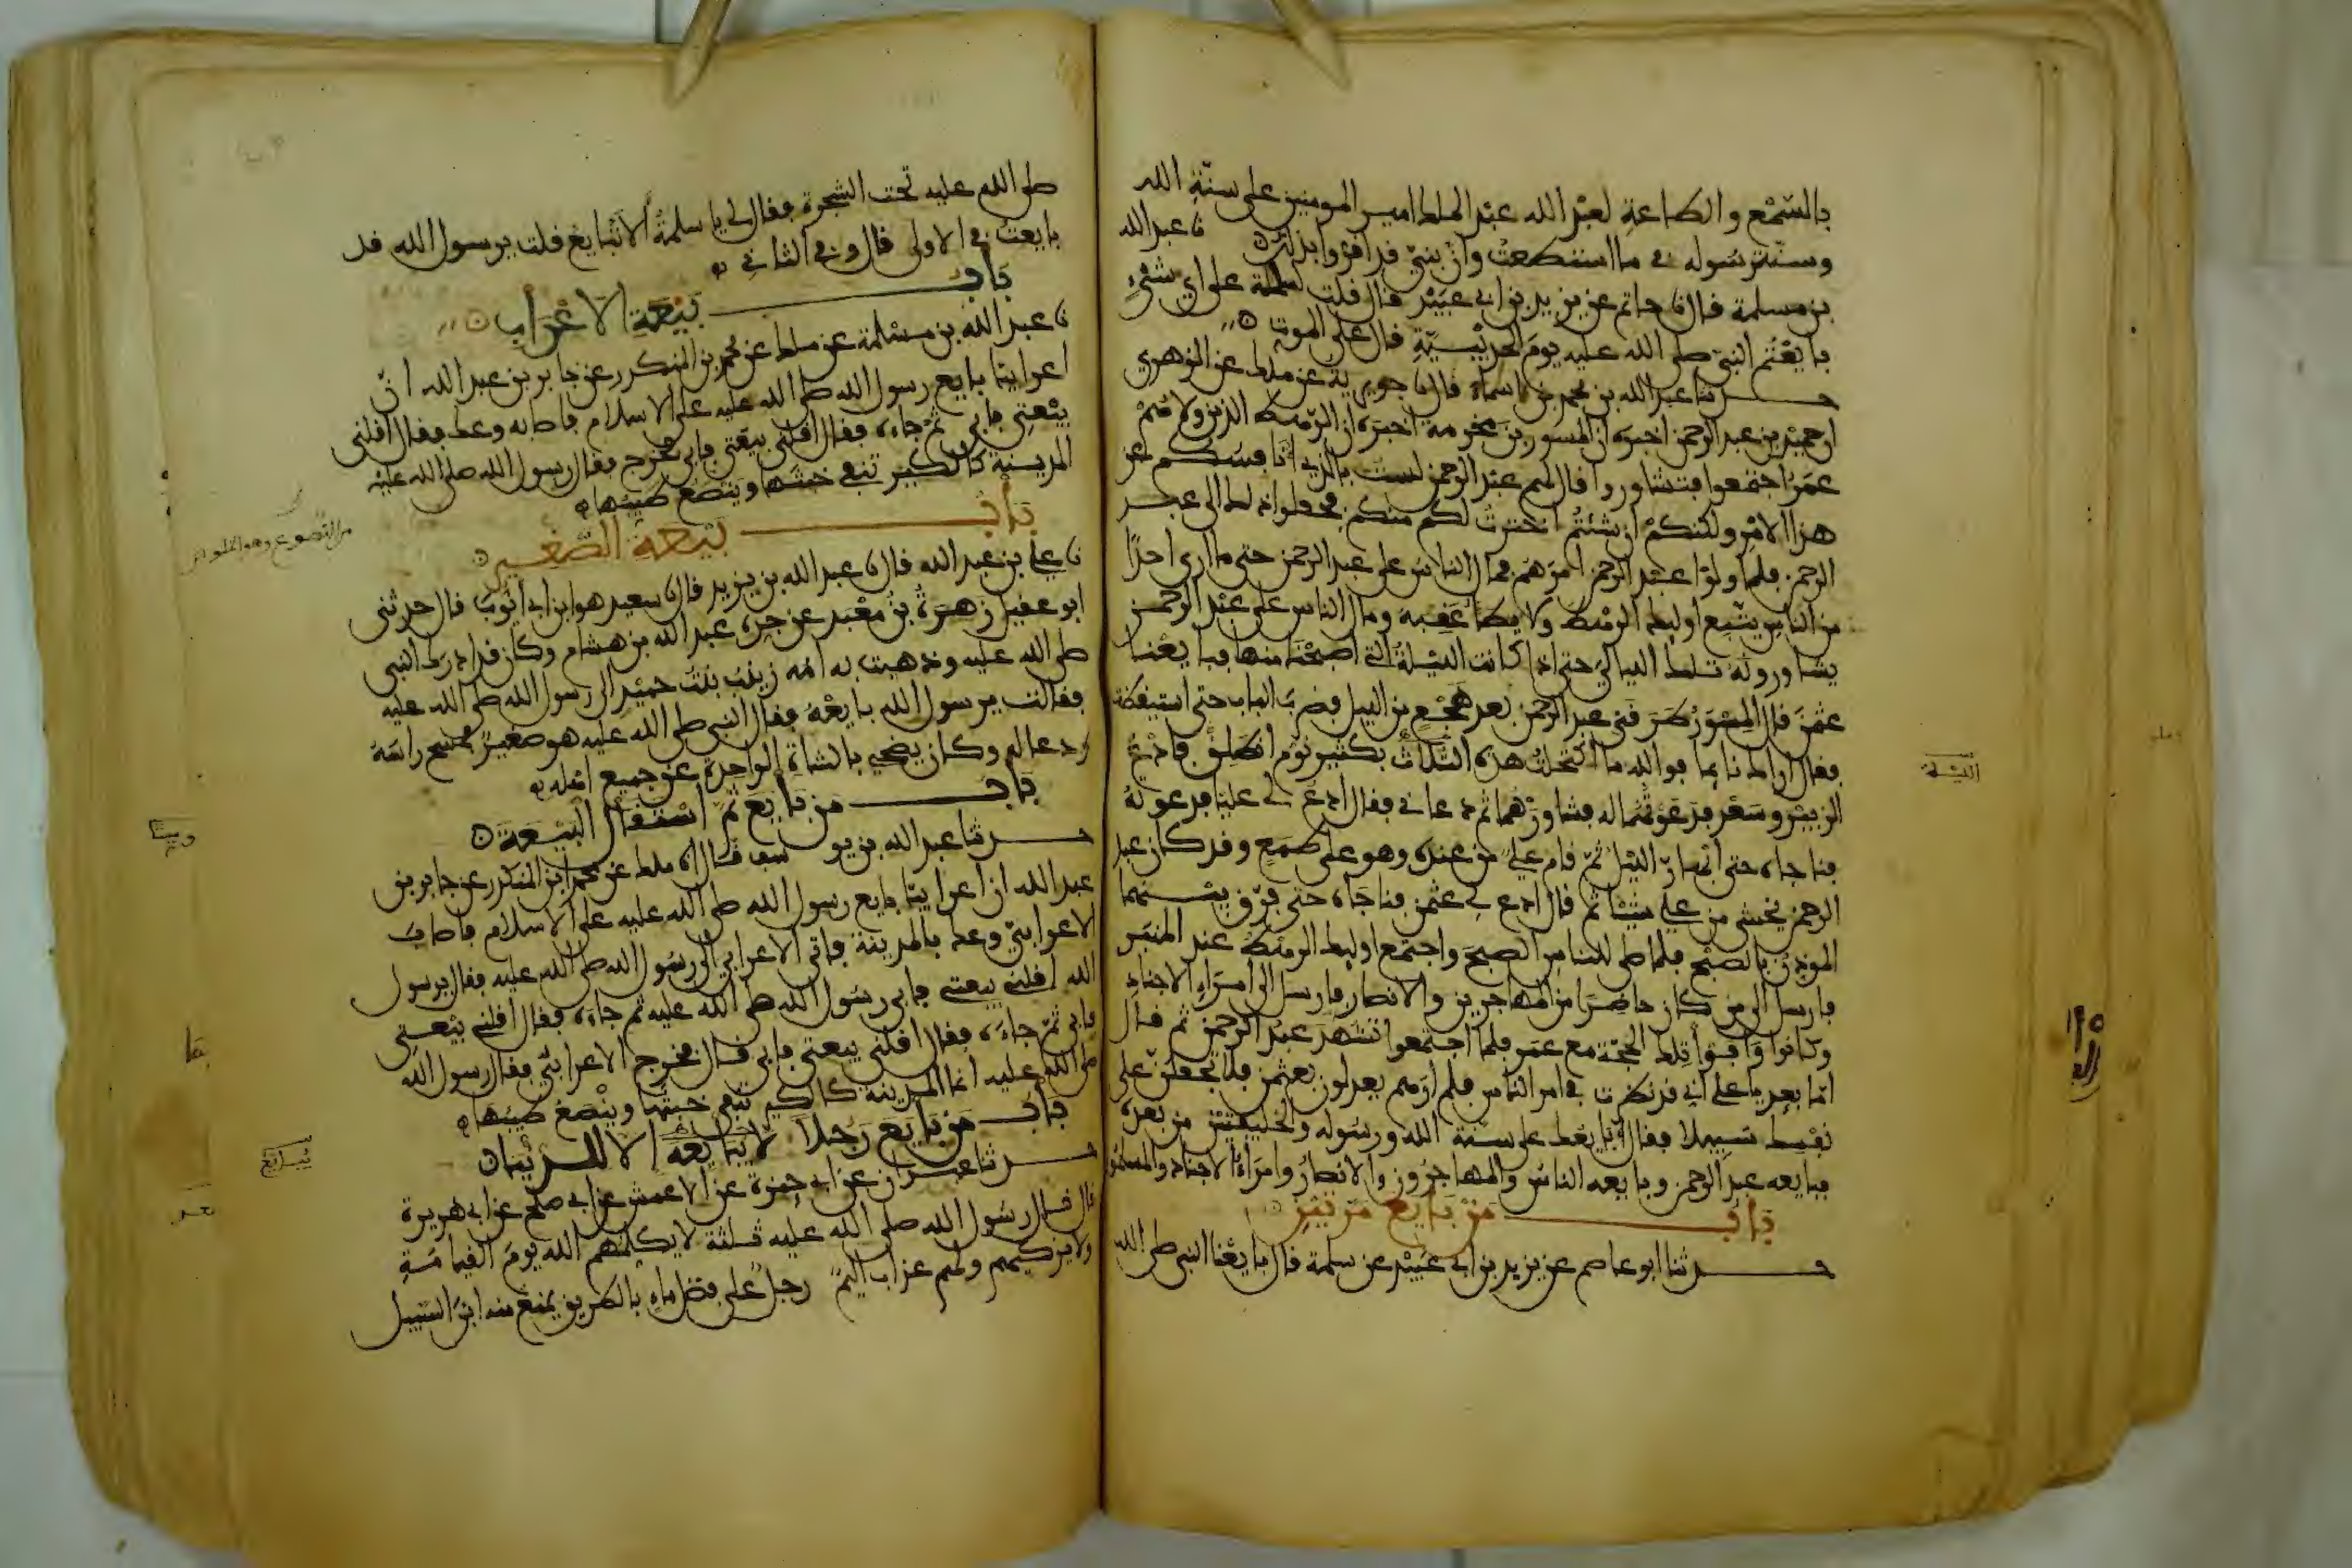 بالسمع والطاعة لعبد الله عبد الملك امير المومنين على سنة الله
وسنة رسوله في ما استطعت وان بني قد اقروا بذلك نا عبد الله
بن مسلمة قال نا حاتم عن يزيد بن ابي عبيد قال قلت لسلمة على اي شيء
بايعتم النبي صلى الله عليه يوم الحديبية قال على الموت
حدثنا عبد الله بن محمد بن اسماء قال نا جويرية عن ملك عن الزهري
ان حميد بن عبد الرحمن اخبره ان المسور بن مخرمة اخبره ان الرهط الذين ولاهم
عمر اجتمعوا فتشاوروا قال لهم عبد الرحمن لست بالذي انافسكم عن
هذا الامر ولكنكم ان شئتم اخترت لكم منكم فجعلوا ذلك الى عبد
الرحمن فلما ولوا عبد الرحمن امرهم فمال الناس على عبد الرحمن حتى ما ارى احدا
من الناس يتبع اوليك الرهط ولا يطا عقبه ومال الناس على عبد الرحمن
يشاورونه تلك الليالي حتى اذا كانت الليلة التي اصبحنا منها فبايعنا
عثمن قال المسور طرقني عبد الرحمن بعد هجع من الليل فضرب الباب حتى استيقظت
فقال اراك نايما فوالله ما اكتحلت هذه الثلاث بكثير نوم انطلق فادع
الزبير وسعدا فدعوتهما له فشاورهما ثم دعاني فقال ادع لي عليا فدعوته
فناجاه حتى ابهار الليل ثم قام علي من عنده وهو على طمع وقد كان عبد
الرحمن يخشى من علي شيئا ثم قال ادع لي عثمن فناجاه حتى فرق بينهما
الموذن بالصبح فلما صلى للناس الصبح واجتمع اوليك الرهط عند المنبر
فارسل الى من كان حاضرا من المهاجرين والانصار فارسل الى امراء الاجناد
وكانوا وافوا تلك الحجة مع عمر فلما اجتمعوا تشهد عبد الرحمن ثم قال
اما بعد يا علي اني قد نظرت في امر الناس فلم ارهم يعدلون بعثمن فلا تجعلن على
نفسك سبيلا فقال ابايعك على سنة الله ورسوله والخليفتين من بعده
فبايعه عبد الرحمن وبايعه الناس والمهاجرون والانصار وامراء الاجناد والمسلمون
باب من بايع مرتين
حدثنا ابو عاصم عن يزيد بن ابي عبيد عن سلمة قال بايعنا النبي صلى الله
الليلة
صلى الله عليه تحت الشجرة فقال لي يا سلمة الا تبايع قلت يرسول الله قد
بايعت في الاولى قال وفي الثاني
باب بيعة الاعراب
نا عبد الله بن مسلمة عن ملك عن محمد بن المنكدر عن جابر بن عبد الله ان
اعرابيا بايع رسول الله صلى الله عليه على الاسلام فاصابه وعك فقال اقلني
بيعتي فابى ثم جاءه فقال اقلني بيعتي فابى فخرج فقال رسول الله صلى الله عليه
المدينة كالكير تنفي خبثها وينصع طيبها
باب بيعة الصغير
نا علي بن عبد الله قال نا عبد الله بن يزيد قال نا سعيد هو ابن ابي ايوب قال حدثني
ابو عقيل زهرة بن معبد عن جده عبد الله بن هشام وكان قد ادرك النبي
صلى الله عليه وذهبت به امه زينب بنت حميد الى رسول الله صلى الله عليه
فقالت يرسول الله بايعه فقال النبي صلى الله عليه هو صغير فمسح راسه
ودعا له وكان يضحي بالشاة الواحدة عن جميع اهله
باب من بايع ثم استقال البيعة
حدثنا عبد الله بن يوسف قال انا ملك عن محمد بن المنكدر عن جابر بن
عبد الله ان اعرابيا بايع رسول الله صلى الله عليه على الاسلام فاصاب
الاعرابي وعك بالمدينة فاتى الاعرابي الى رسول الله صلى الله عليه فقال يرسول
الله اقلني بيعتي فابى رسول الله صلى الله عليه ثم جاءه فقال اقلني بيعتي
فابى ثم جاءه فقال اقلني بيعتي فابى قال فخرج الاعرابي فقال رسول الله
صلى الله عليه انما المدينة كالكير تنفي خبثها وينصع طيبها
باب من بايع رجلا لا يبايعه الا للدنيا
حدثنا عبدان عن ابي حمزة عن الاعمش عن ابي صلح عن ابي هريرة
قال قال رسول الله صلى الله عليه ثلثة لا يكلمهم الله يوم القيامة
ولا يزكيهم ولهم عذاب اليم رجل على فضل ماء بالطريق يمنع منه ابن السبيل